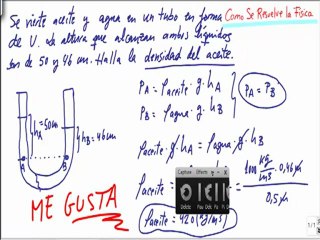 Se vierte aceite y agua en un tubo en forma
de U. La altura que alcanzan ambos líquidos
son de 50 y 46 cm. Halla la densidad del aceite.
Como Se Resuelve la Física
hA=50cm
hB=46cm
A
B
PA = ρaceite · g · hA
PB = ρagua · g · hB
PA = PB
ρaceite · g · hA = ρagua · g · hB
ρaceite =
1000 kg/m³ · 0,46 m
0,5 m
ρaceite = 920 kg/m³
ME GUSTA
Capture
Effects
1/1